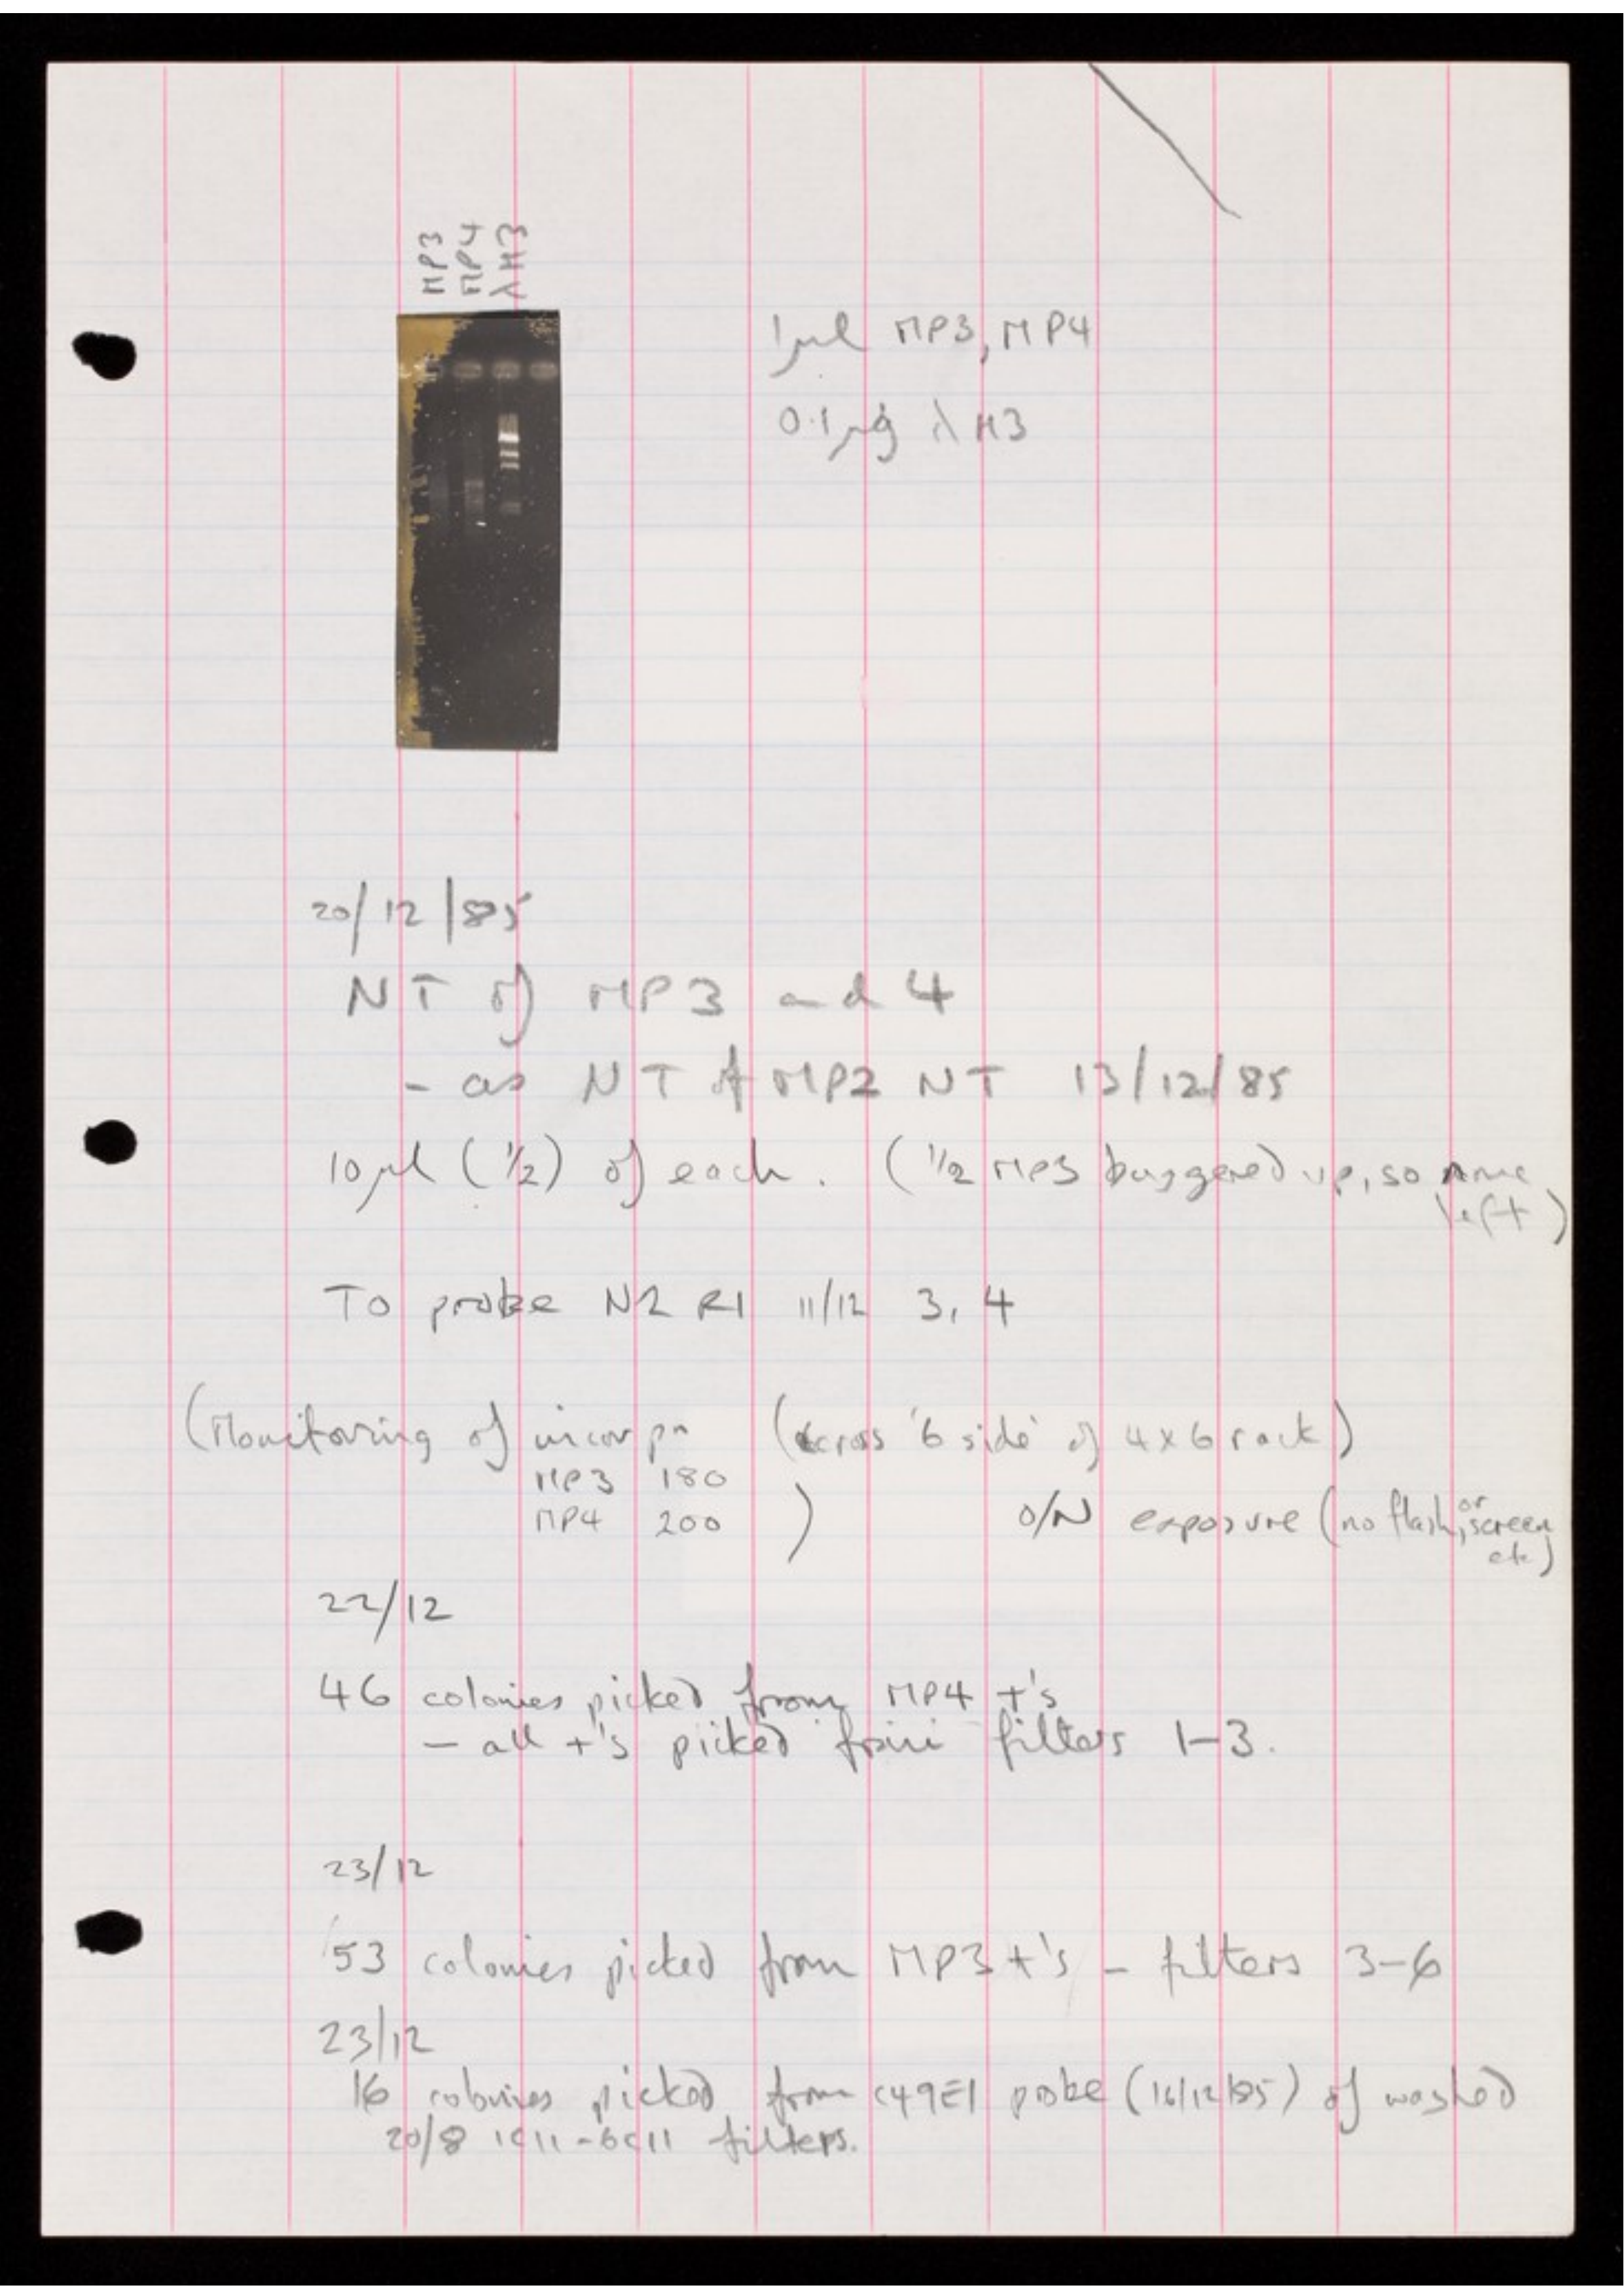 MP3
MP4
λH3
1μl MP3, MP4
0.1μg λH3
20/12/85
NT of MP3 and 4
- as NT of MP2 NT 13/12/85
10μl (1/2) of each. (1/2 MP3 buggered up, so none
left)
To probe N2 R1 11/12 3, 4
(Monitoring of incorpn (across '6 side' of 4x6 rack)
MP3 180
MP4 200 )
O/N exposure (no flash, or screen
etc)
22/12
46 colonies picked from MP4 +'s
- all +'s picked from filters 1-3.
23/12
53 colonies picked from MP3 +'s - filters 3-6
23/12
16 colonies picked from C49E1 probe (16/12/85) of washed
20/8 1C11-6C11 filters.